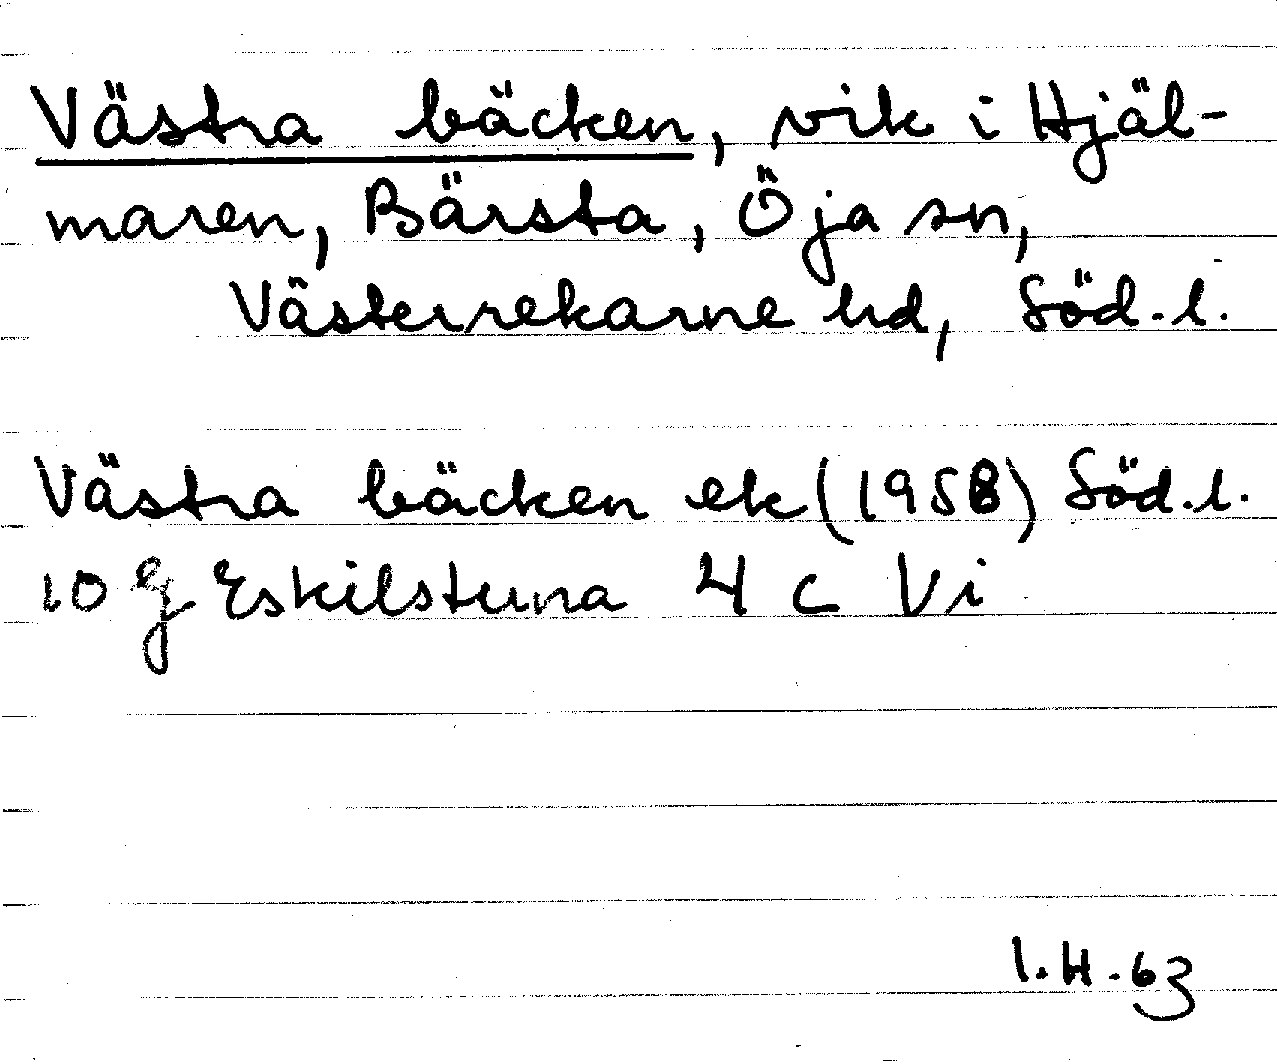 Västra bäcken, vik i Hjäl-
maren, Bärsta, Öja sn,
Västerrekarne hd, Söd.l.
Västra bäcken ek (1958) Söd.l.
10 g Eskilstuna 4 c Vi
I.H.63